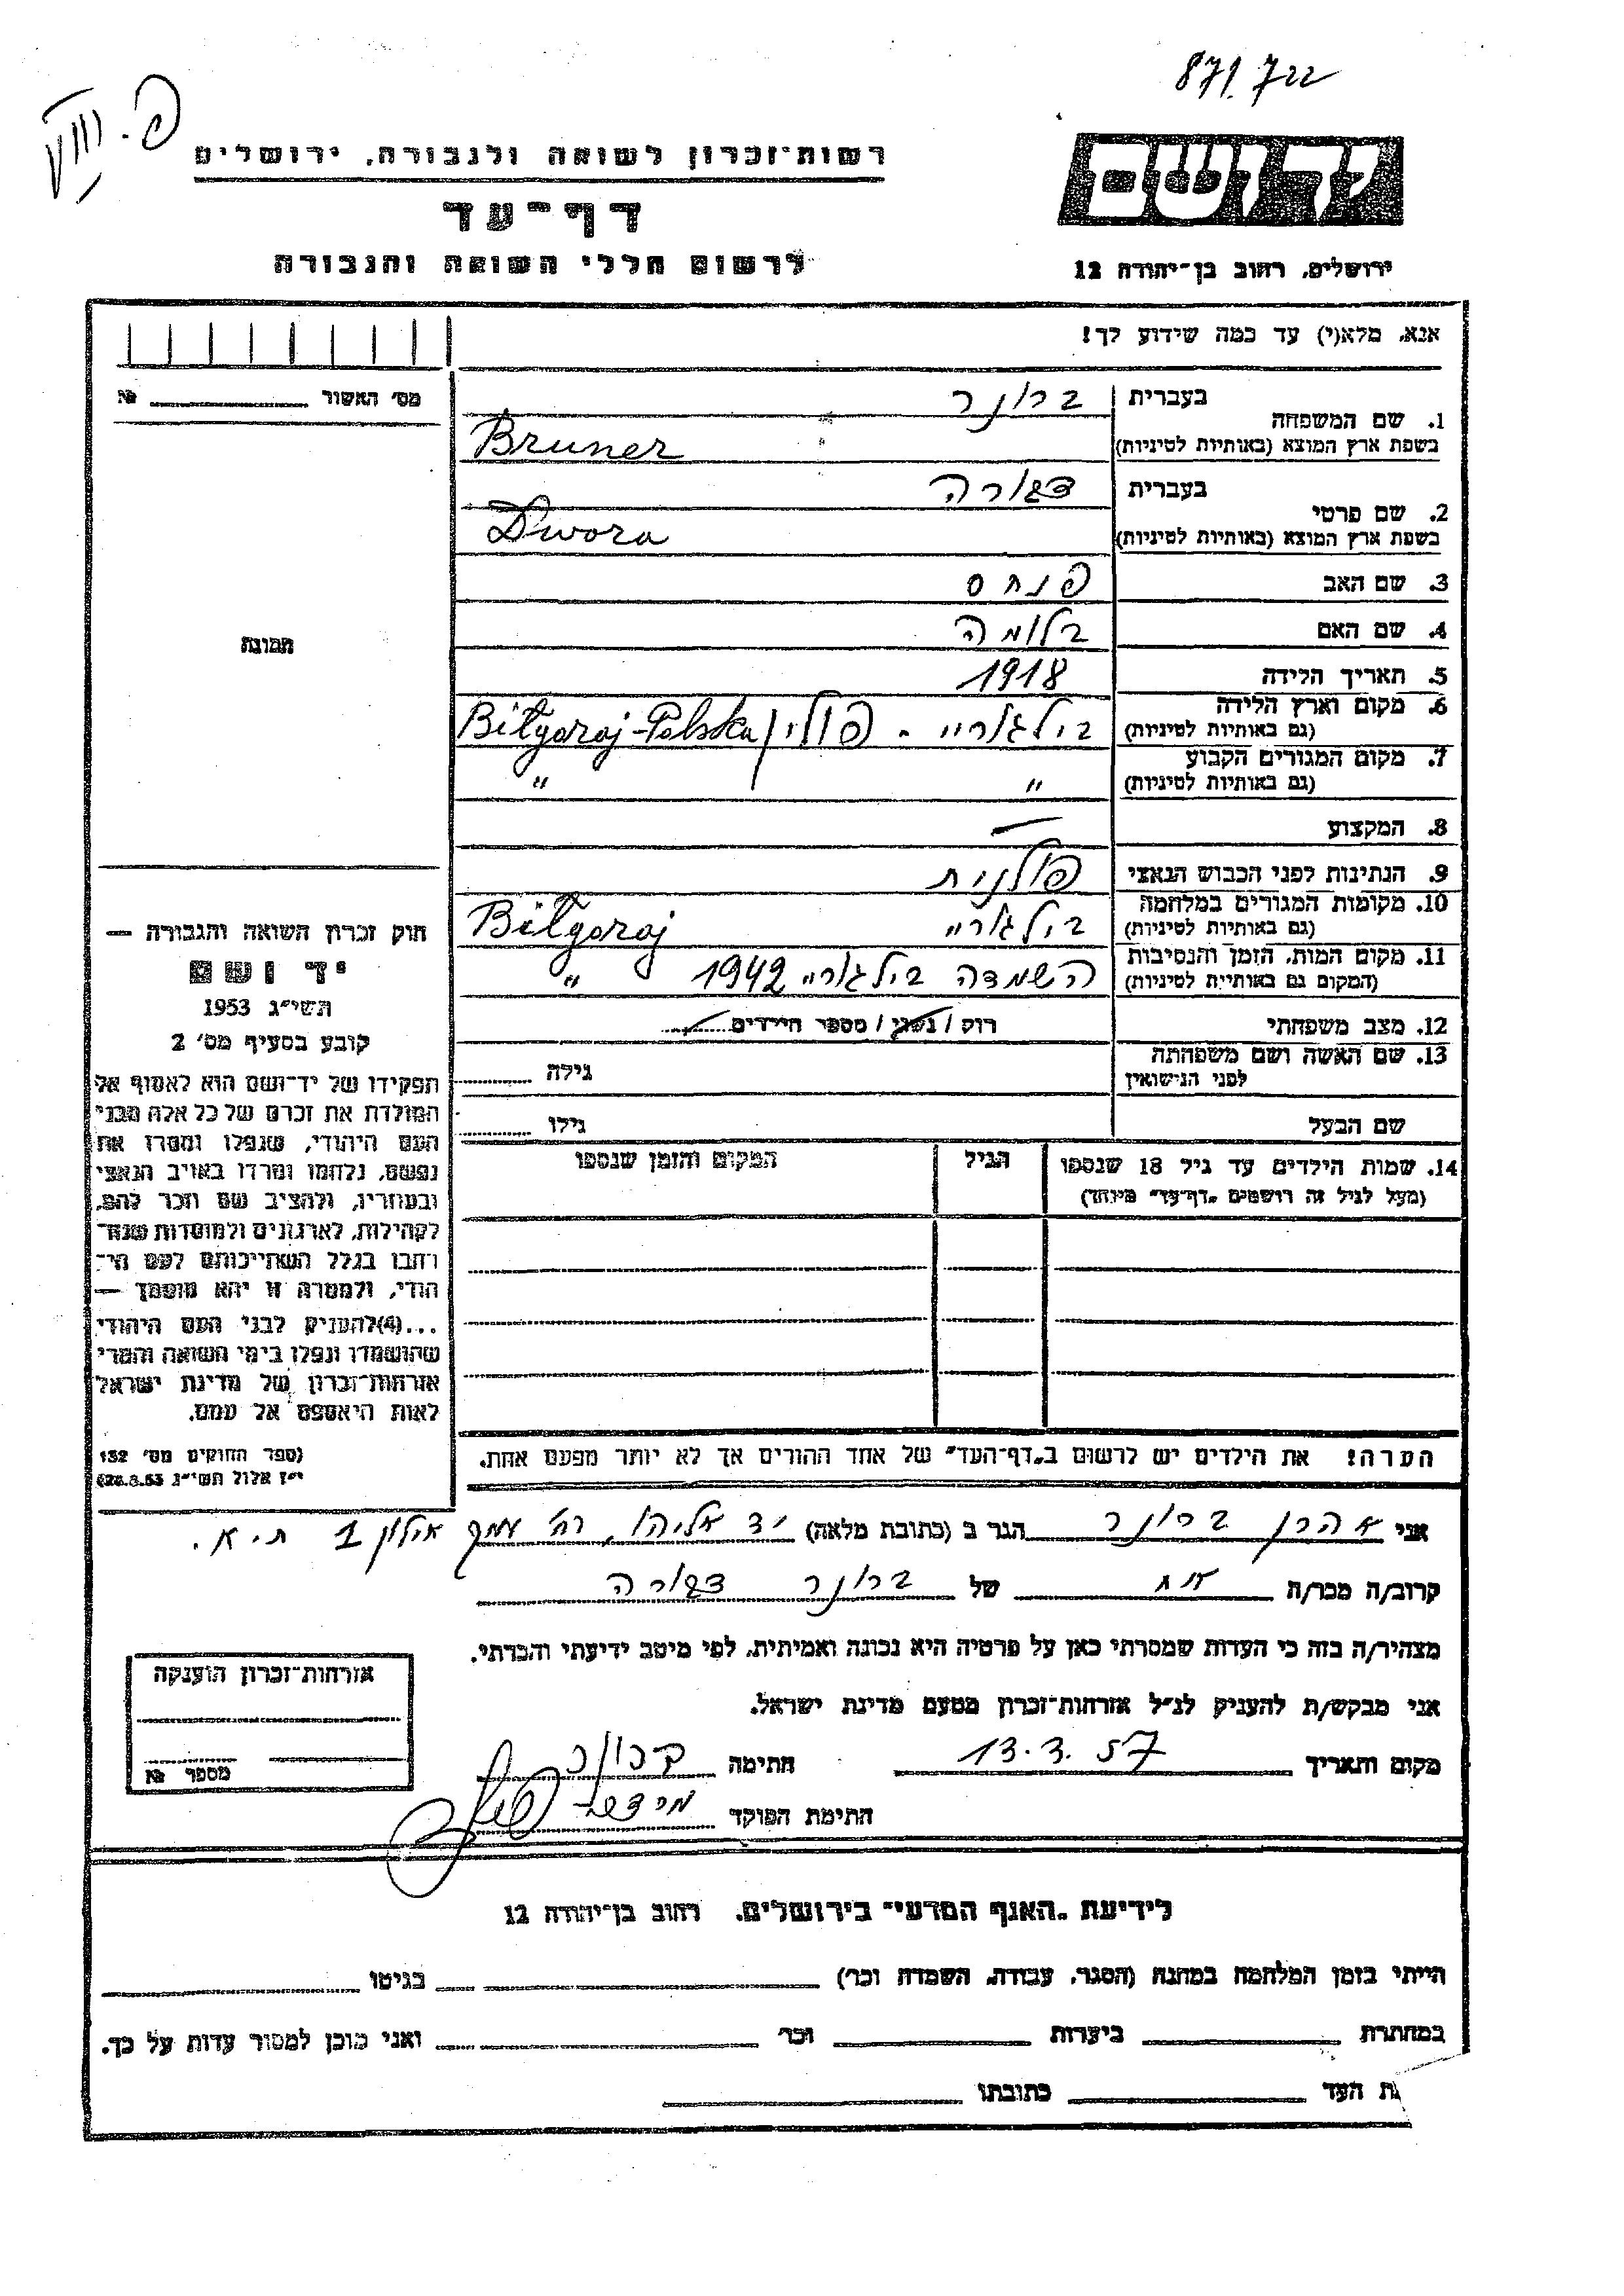 871.722
רשות־זכרון לשואה ולגבורה, ירושלים
דף־עד
לרשום חללי השואה והגבורה
יד ושם
ירושלים, רחוב בן־יהודה 12
אנא, מלא(י) עד כמה שידוע לך!
מס׳ האשור №
תמונה
1. שם המשפחה בעברית ברונר
בשפת ארץ המוצא (באותיות לטיניות) Bruner
2. שם פרטי בעברית דבורה
בשפת ארץ המוצא (באותיות לטיניות) Dwora
3. שם האב פנחס
4. שם האם בלומה
5. תאריך הלידה 1918
6. מקום וארץ הלידה (גם באותיות לטיניות) בילגוריי - פולין Biłgoraj-Polska
7. מקום המגורים הקבוע (גם באותיות לטיניות) " "
8. המקצוע —
9. הנתינות לפני הכבוש הנאצי פולנית
10. מקומות המגורים במלחמה (גם באותיות לטיניות) בילגוריי Biłgoraj
11. מקום המות, הזמן והנסיבות (המקום גם באותיות לטיניות) השמדה בילגוריי 1942 "
12. מצב משפחתי רוק / נשוי / מספר הילדים
13. שם האשה ושם משפחתה לפני הנישואין גילה
שם הבעל גילו
14. שמות הילדים עד גיל 18 שנספו הגיל המקום והזמן שנספו
(מעל לגיל זה רושמים „דף־עד״ מיוחד)
חוק זכרון השואה והגבורה —
יד ושם
תשי״ג 1953
קובע בסעיף מס׳ 2
תפקידו של יד־ושם הוא לאסוף אל
המולדת את זכרם של כל אלה מבני
העם היהודי, שנפלו ומסרו את
נפשם, נלחמו ומרדו באויב הנאצי
ובעוזריו, ולהציב שם וזכר להם,
לקהילות, לארגונים ולמוסדות שנח־
רחבו בגלל השתייכותם לעם הי־
הודי, ולמטרה זו יהא מוסמך —
...(4)להעניק לבני העם היהודי
שהושמדו ונפלו בימי השואה והמרי
אזרחות־זכרון של מדינת ישראל
לאות היאספם אל עמם.
(ספר החוקים מס׳ 132
י״ז אלול תשי״ג 28.8.53)
הערה! את הילדים יש לרשום ב„דף־העד״ של אחד ההורים אך לא יותר מפעם אחת.
אני אהרן ברונר הגר ב (כתובת מלאה) יד אליהו, רח׳ עמק אילון 1 ת.א.
קרוב/ה מכר/ה אח של ברונר דבורה
מצהיר/ה בזה כי העדות שמסרתי כאן על פרטיה היא נכונה ואמיתית, לפי מיטב ידיעתי והכרתי.
אני מבקש/ת להעניק לנ״ל אזרחות־זכרון מטעם מדינת ישראל.
מקום ותאריך 13.3.57 חתימה ברונר
חתימת הפוקד
אזרחות־זכרון הוענקה
מספר №
לידיעת „האגף המדעי״ בירושלים, רחוב בן־יהודה 12
הייתי בזמן המלחמה במחנה (הסגר, עבודה, השמדה וכו׳) בגיטו
במחתרת ביערות וכו׳ ואני מוכן למסור עדות על כך.
ת העד כתובתו